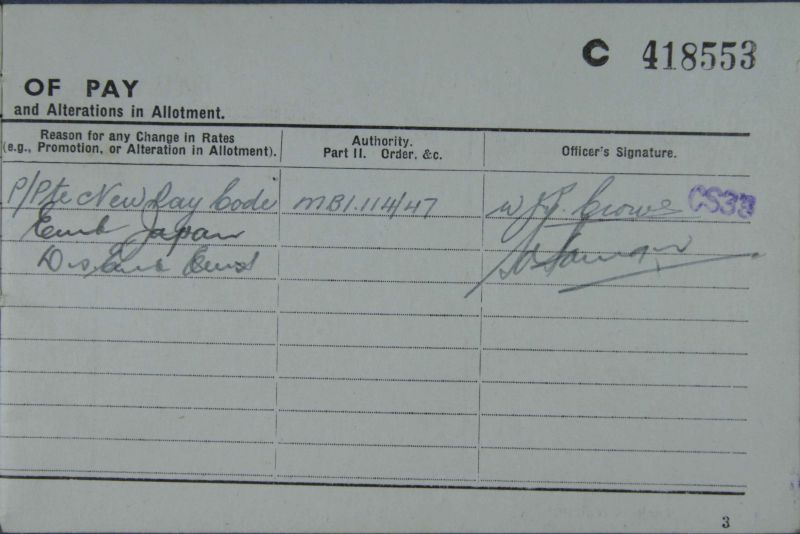 C 418553
OF PAY
and Alterations in Allotment.
Reason for any Change in Rates
(e.g., Promotion, or Alteration in Allotment).
Authority.
Part II. Order, &c.
Officer's Signature.
P/Pte New Pay Code MBI.114/47 W J Crowe CS33
Emb Japan
3